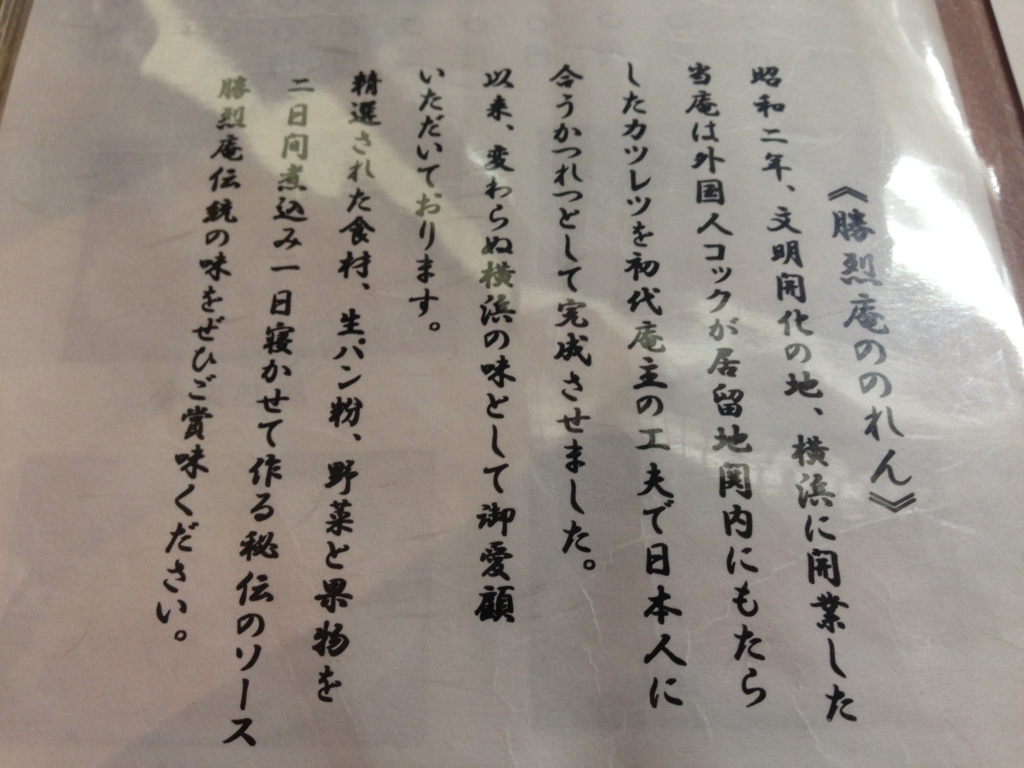 《勝烈庵ののれん》
昭和二年、文明開化の地、横浜に開業した
当庵は外国人コックが居留地関内にもたら
したカツレツを初代庵主の工夫で日本人に
合うかつれつとして完成させました。
以来、変わらぬ横浜の味として御愛顧
いただいております。
精選された食材、生パン粉、野菜と果物を
二日间煮込み一日寝かせて作る秘伝のソース
勝烈庵伝統の味をぜひご賞味ください。